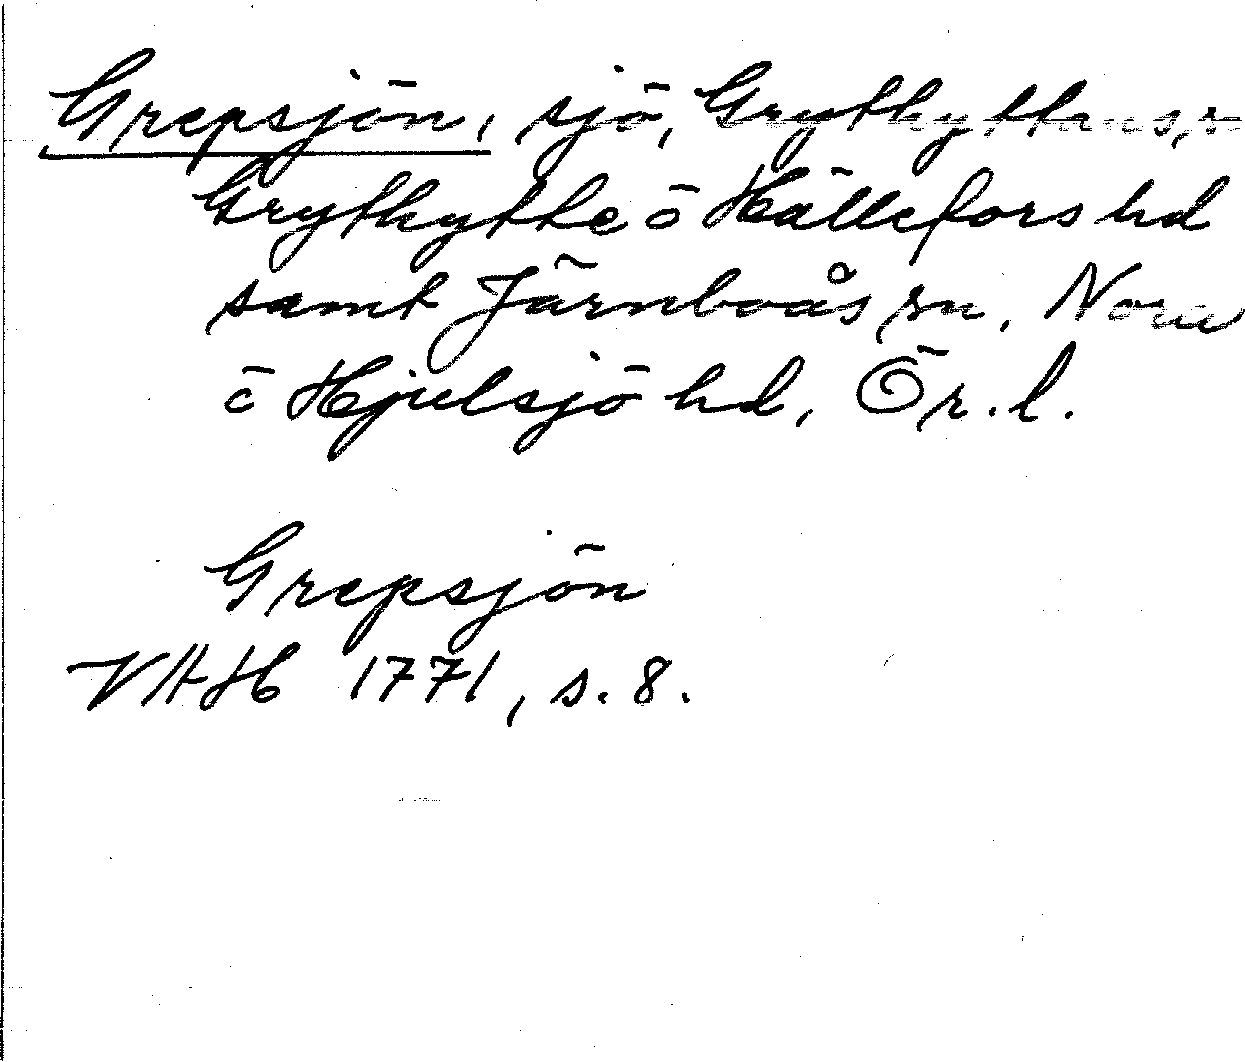 Grepsjön, sjö, Grythyttans s
Grythytte o Hällefors hd
samt Järnboås sn, Nora
o Hjulsjö hd, Ör. l.
Grepsjön
VAH 1771, s. 8.